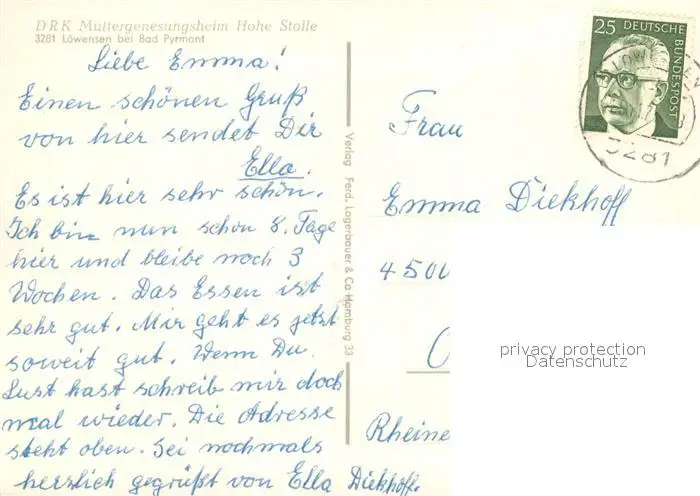 DRK Müttergenesungsheim Hohe Stolle
3281 Löwensen bei Bad Pyrmont
Liebe Emma!
Einen schönen Gruß
von hier sendet Dir
Ella.
Es ist hier sehr schön.
Ich bin nun schon 8. Tage
hier und bleibe noch 3
Wochen. Das Essen ist
sehr gut. Mir geht es jetzt
soweit gut. Wenn Du
Lust hast schreib mir doch
mal wieder. Die Adresse
steht oben. Sei nochmals
herzlich gegrüßt von Ella Diekhoff.
Verlag Ferd. Lagerbauer & Co Hamburg 33
25 DEUTSCHE
BUNDESPOST
3281
Frau
Emma Diekhoff
4500
Rheine
privacy protection
Datenschutz